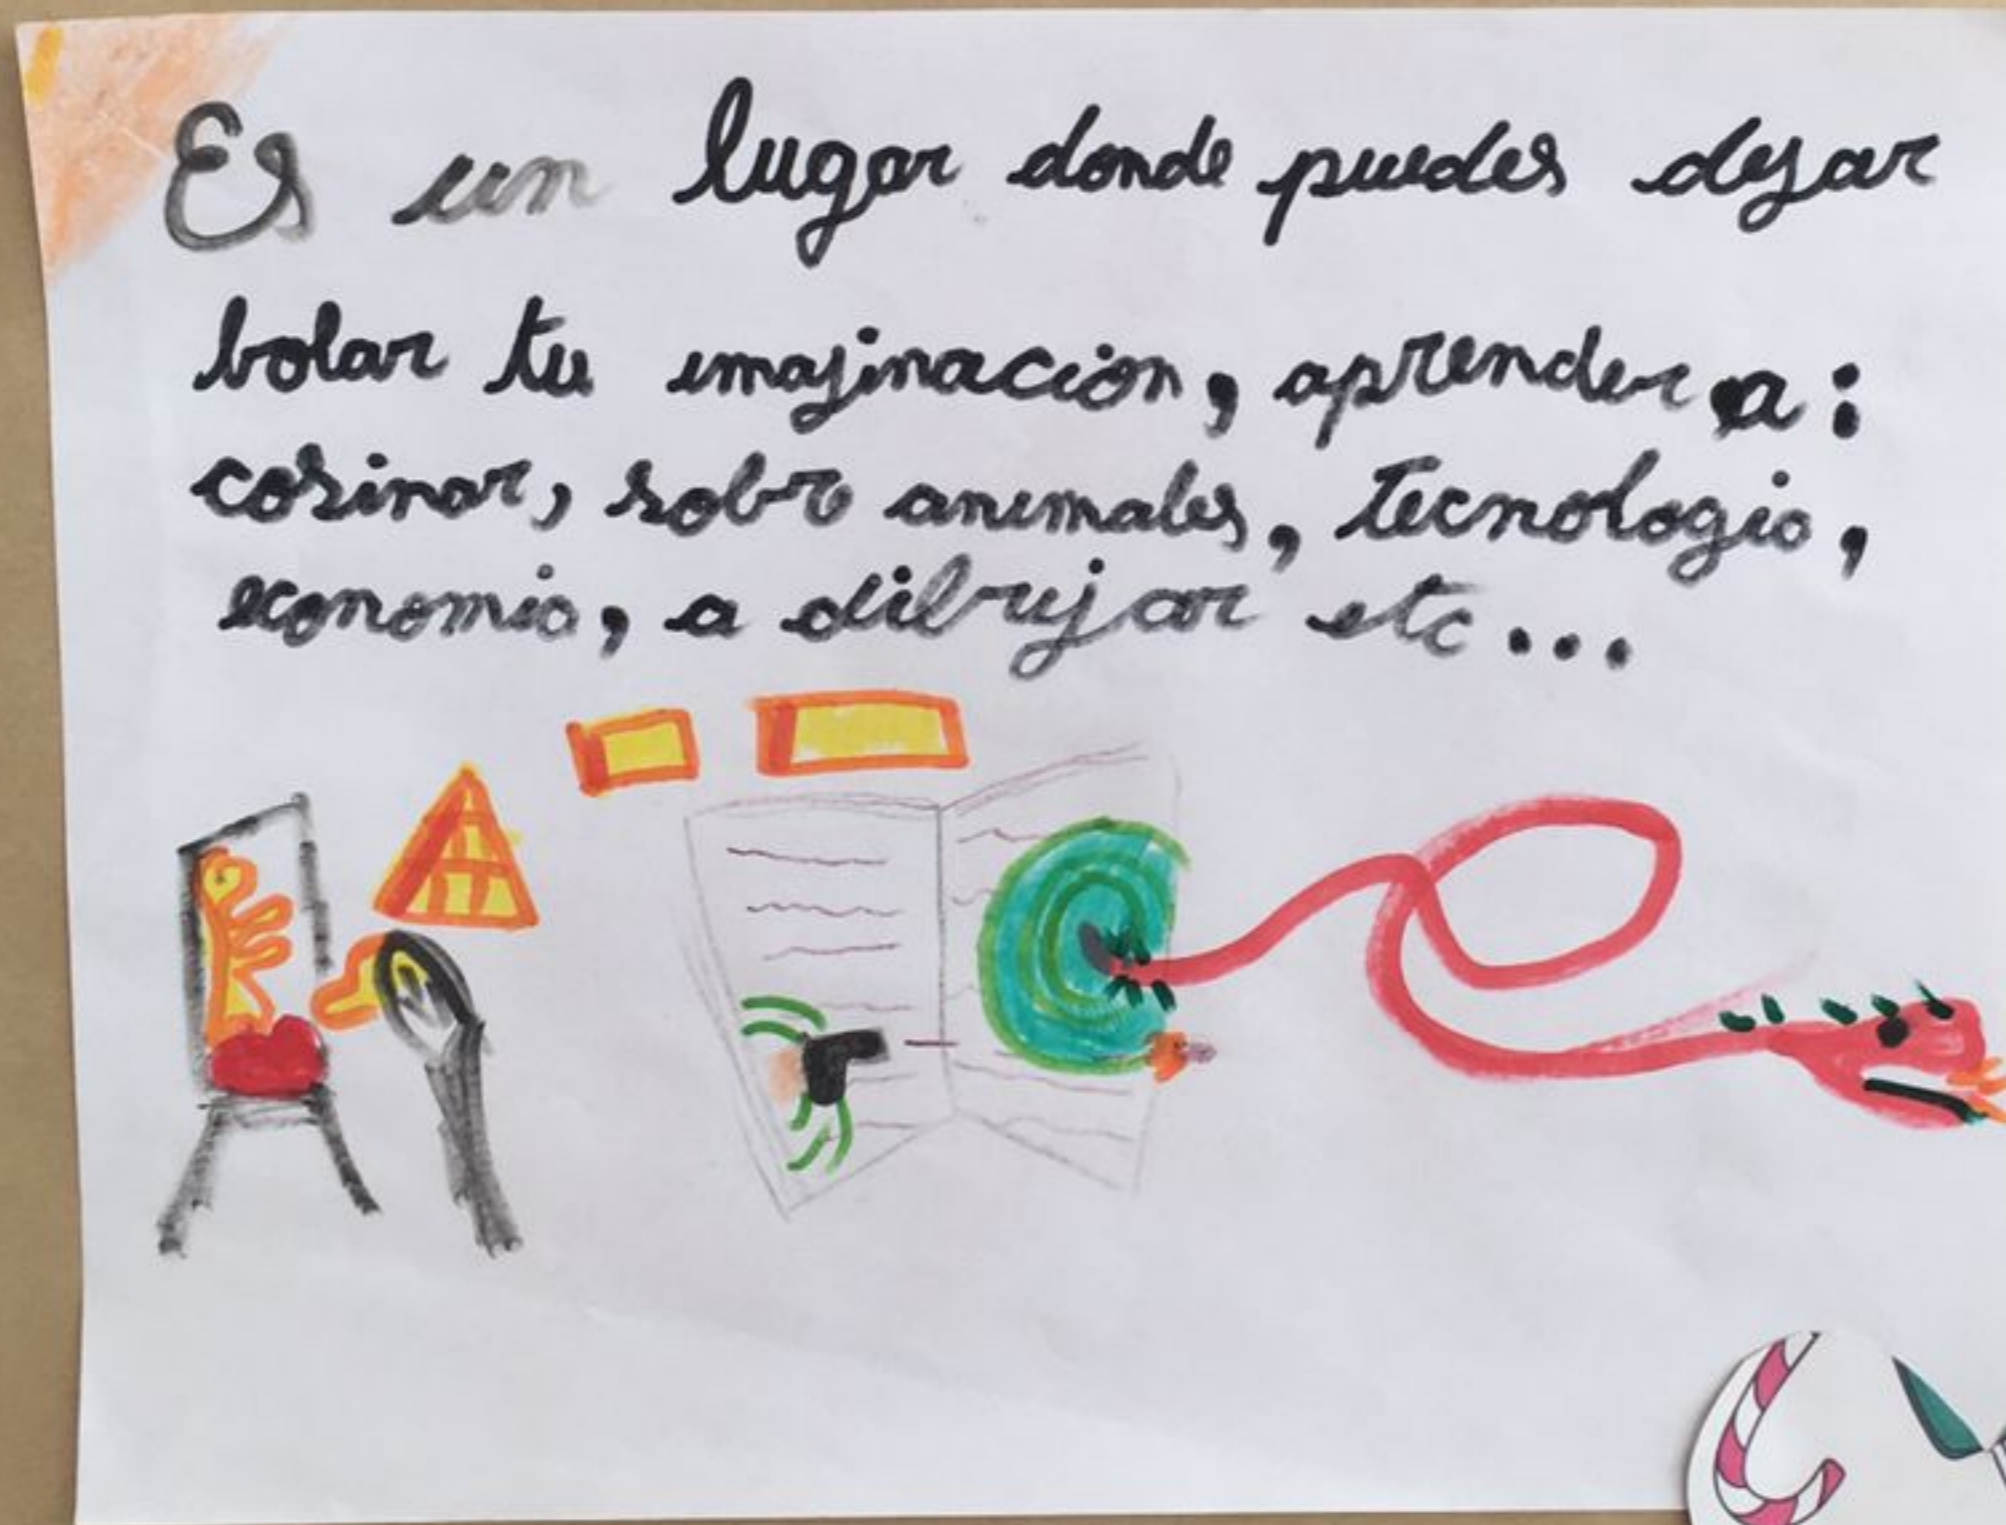 Es un lugar donde puedes dejar
bolar tu imajinación, aprender a:
cosinar, sobre animales, tecnologia,
economia, a dibujar etc...